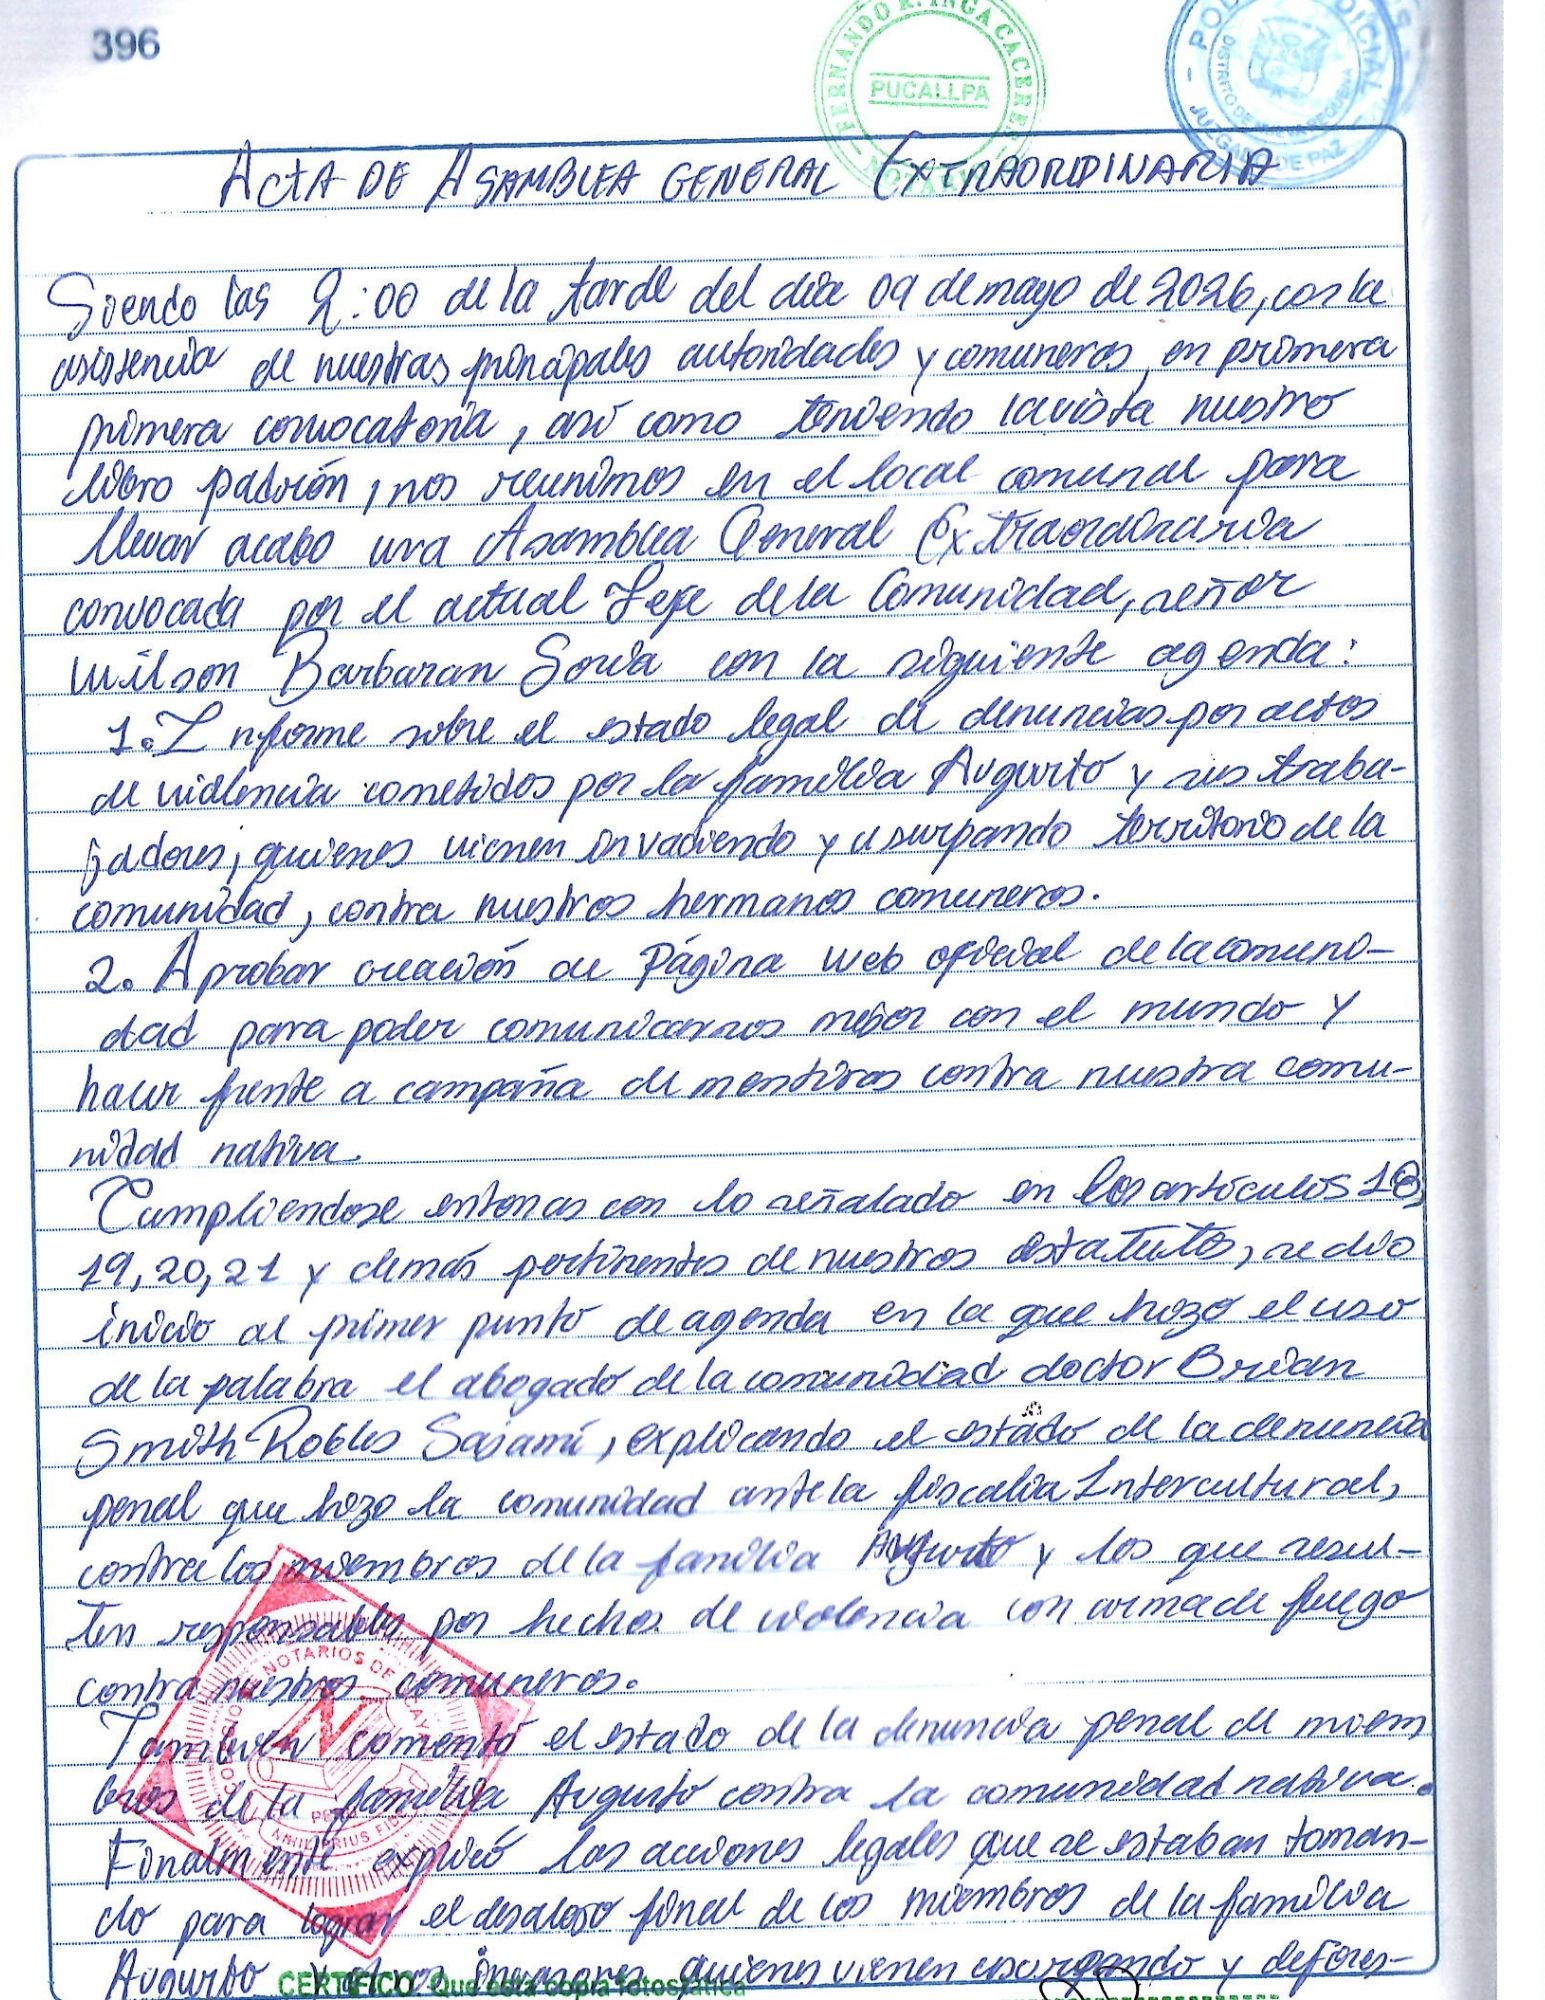 396
FERNANDO R. INGA CACERES
PUCALLPA
NOTA
PODER JUDICIAL
DISTRITO DE NUEVA REQUENA
JUZGADO DE PAZ
ACTA DE ASAMBLEA GENERAL EXTRAORDINARIA
Siendo las 2:00 de la tarde del dia 09 de mayo de 2026, con la
asistencia de nuestras principales autoridades y comuneros, en primera
primera convocatoria, así como teniendo la vista nuestro
libro padrón, nos reunimos en el local comunal para
llevar acabo una Asamblea General Extraordinaria
convocada por el actual Jefe de la Comunidad, señor
Wilson Barbaran Soria con la siguiente agenda:
1. Informe sobre el estado legal de denuncias por actos
de violencia cometidos por la familia Augurto y sus traba-
jadores, quienes vienen invadiendo y usurpando territorio de la
comunidad, contra nuestros hermanos comuneros.
2. Aprobar creación de Página web oficial de la comuni-
dad para poder comunicarnos mejor con el mundo y
hacer frente a campaña de mentiras contra nuestra comu-
nidad nativa.
Cumpliendose entonces con lo señalado en los artículos 18,
19, 20, 21 y demás pertinentes de nuestros estatutos, se dio
inicio al primer punto de agenda en la que hizo el uso
de la palabra el abogado de la comunidad doctor Brian
Smith Robles Sajamí, explicando el estado de la denuncia
penal que hizo la comunidad ante la fiscalia Intercultural,
contra los miembros de la familia Augurto y los que resul-
ten responsables por hechos de violencia con arma de fuego
contra nuestros comuneros.
También comentó el estado de la denuncia penal de miem
bros de la familia Augurto contra la comunidad nativa.
Finalmente explicó las acciones legales que se estaban toman-
do para lograr el desalojo final de los miembros de la familia
Augurto y otros invasores quienes vienen descargando y defores-
COLEGIO DE NOTARIOS DE UCAYALI
N
PERU
NIHIL PRIUS FIDE
CERTIFICO: Que esta copia fotostática